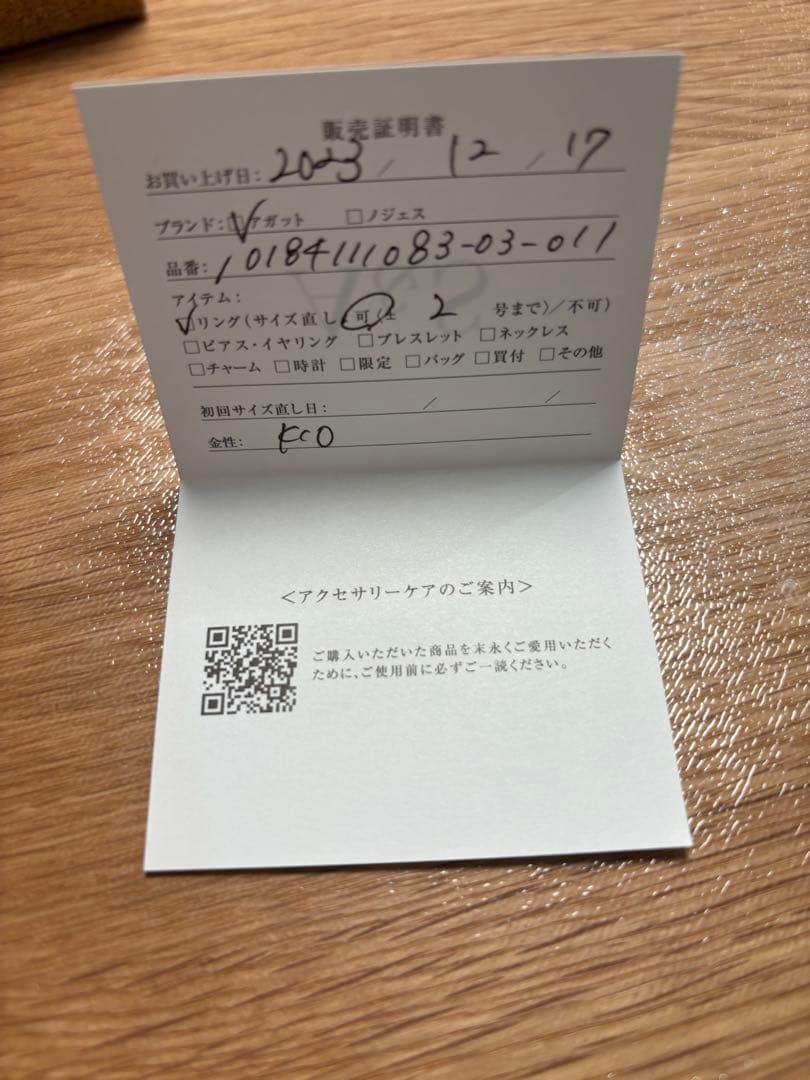 販売証明書
お買い上げ日: 2023 / 12 / 17
ブランド: ☑アガット □ノジェス
品番: 10184111083-03-011
アイテム:
☑リング(サイズ直し 可(± 2 号まで)/不可)
□ピアス・イヤリング □ブレスレット □ネックレス
□チャーム □時計 □限定 □バッグ □買付 □その他
初回サイズ直し日: / /
金性:
<アクセサリーケアのご案内>
ご購入いただいた商品を末永くご愛用いただく
ために、ご使用前に必ずご一読ください。